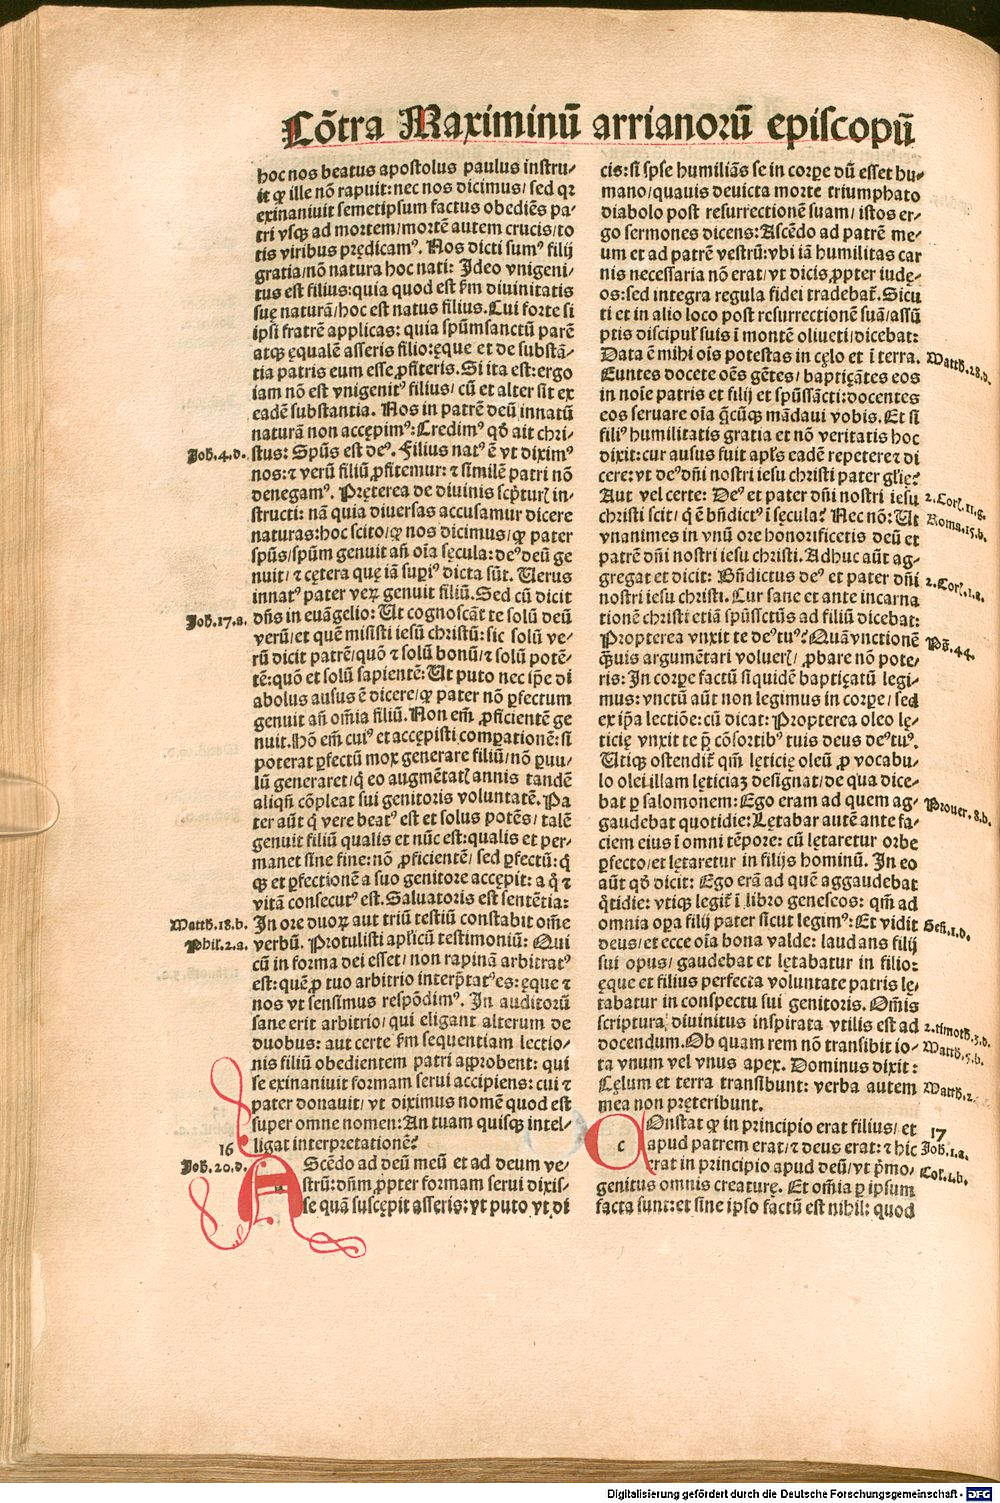 Cōtra Maximinū arrianorū episcopū
hoc nos beatus apostolus paulus instru/
it ꝙ ille nō rapuit: nec nos dicimus/ sed qꝛ
exinaniuit semetipsum factus obediēs pa/
tri vsqꝫ ad mortem/ mortē autem crucis/ to
tis viribus prędicamꝰ. Nos dicti sumꝰ filij
gratia/ nō natura hoc nati: Ideo vnigeni/
tus est filius: quia quod est ẜm diuinitatis
suę naturā/ hoc est natus filius. Cui forte si
ipsi fratrē applicas: quia spūmsanctū parē
atqꝫ ęqualē asseris filio: ęque et de substā/
tia patris eum esse ꝓfiteris. Si ita est: ergo
iam nō est vnigenitꝰ filius/ cū et alter sit ex
eadē substantia. Nos in patrē deū innatū
naturā non accępimꝰ: Credimꝰ qd̓ ait chri/
Joh.4.d.
stus: Spūs est deꝰ. Filius natꝰ ē vt diximꝰ
nos: ⁊ verū filiū ꝓfitemur: ⁊ similē patri nō
denegamꝰ. Pręterea de diuinis scp̄turꝭ in/
structi: nā quia diuersas accusamur dicere
naturas: hoc scito/ ꝙ nos dicimus/ ꝙ pater
spūs/ spūm genuit añ oīa sęcula: deꝰ deū ge
nuit/ ⁊ cętera quę iā supiꝰ dicta sūt. Uerus
innatꝰ pater verꝝ genuit filiū. Sed cū dicit
Joh.17.a.
dñs in euāgelio: Ut cognoscāt te solū deū
verū/ et quē misisti iesū christū: sic solū ve/
rū dicit patrē/ quō ⁊ solū bonū/ ⁊ solū potē/
tē: quō et solū sapientē: Ut puto nec ip̄e di
abolus ausus ē dicere/ ꝙ pater nō ꝑfectum
genuit añ oīmia filiū. Non em̄ ꝓficientē ge
nuit. Hō em̄ cuiꝰ et accępisti compationē: si
poterat ꝑfectū mox generare filiū/ nō ꝑuu/
lū generaret/ q̇ eo augmētatꝭ annis tandē
aliqñ cōpleat sui genitoris voluntatē. Pa
ter aūt q̇ vere beatꝰ est et solus potēs/ talē
genuit filiū qualis et nūc est: qualis et per/
manet sine fine: nō ꝓficientē/ sed ꝑfectū: q̇
qꝫ et ꝑfectionē a suo genitore accępit: a q̊ ⁊
vitā consecutꝰ est. Saluatoris est sentētia:
Matth.18.b.
In ore duoꝝ aut triū testiū constabit om̄e
Phil.2.a.
verbū. Protulisti apl̓icū testimoniū: Qui
cū in forma dei esset/ non rapinā arbitratꝰ
est: quē ꝓ tuo arbitrio interp̄tatꝰ es: ęque ⁊
nos vt sensimus respōdimꝰ. In auditorū
sane erit arbitrio/ qui eligant alterum de
duobus: aut certe ẜm sequentiam lectio/
nis filiū obedientem patri approbent: qui
se exinaniuit formam serui accipiens: cui ⁊
pater donauit/ vt diximus nomē quod est
super omne nomen: An tuam quisqꝫ intel/
ligat interpretationē?
16
Joh.20.d.
AScēdo ad deū meū et ad deum ve/
strū: dūm ꝓpter formam serui dixis/
se quā suscępit asseris: vt puto vt di
cis: si ipse humiliās se in corpe dū esset hu/
mano/ quauis deuicta morte triumphato
diabolo post resurrectionē suam/ istos er/
go sermones dicens: Ascēdo ad patrē me/
um et ad patrē vestrū: vbi iā humilitas car
nis necessaria nō erat/ vt dicis ꝓpter iudę/
os: sed integra regula fidei tradebat̄. Sicu
ti et in alio loco post resurrectionē suā/ assū
ptis discipul̓ suis ī montē oliueti/ dicebat:
Data ē mihi oīs potestas in cęlo et ī terra.
Matth.28.d.
Euntes docete oēs gētes/ baptiçātes eos
in noīe patris et filij et spūssācti: docentes
eos seruare oīa q̄cūqꝫ mādaui vobis. Et si
filiꝰ humilitatis gratia et nō veritatis hoc
dixit: cur ausus fuit apl̓s eadē repetere ⁊ di
cere: vt deꝰ dñi nostri iesu christi pater glię?
Aut vel certe: Deꝰ et pater dñi nostri iesu
2.Corꝭ.11.g.
christi scit/ q̇ ē bñdictꝰ ī sęcula? Nec nō: Ut
Roma.15.b.
vnanimes in vnū ore honorificetis deū et
patrē dñi nostri iesu christi. Adhuc aūt ag/
gregat et dicit: Bñdictus deꝰ et pater dñi
2.Corꝭ.1.a.
nostri iesu christi. Cur sane et ante incarna
tionē christi etiā spūssctūs ad filiū dicebat:
Propterea vnxit te deꝰ tuꝰ? Quā vnctionē
Pṡ.44.
q̄uis argumētari voluerꝭ/ ꝓbare nō pote/
ris: In corpe factū siquidē baptiçatū legi/
mus: vnctū aūt non legimus in corpe/ sed
ex ip̄a lectiōe: cū dicat: Propterea oleo lę/
ticię vnxit te p̄ cōsortibꝰ tuis deus deꝰ tuꝰ.
Utiqꝫ ostendit̄ qm̄ lęticię oleū ꝓ vocabu/
lo olei illam lęticiaꝫ designat/ de qua dice/
bat ꝑ salomonem: Ego eram ad quem ag/
Prouer.8.b.
gaudebat quotidie: Lętabar autē ante fa/
ciem eius ī omni tēpore: cū lętaretur orbe
ꝑfecto/ et lętaretur in filijs hominū. In eo
aūt qd̓ dicit: Ego erā ad quē aggaudebat
q̊tidie: vtiqꝫ legit̄ ī libro geneseos: qm̄ ad
omnia opa filij pater sicut legimꝰ: Et vidit
Gen̄.1.d.
deus/ et ecce oīa bona valde: laudans filij
sui opus/ gaudebat et lętabatur in filio:
ęque et filius perfecta voluntate patris lę/
tabatur in conspectu sui genitoris. Om̄is
scriptura/ diuinitus inspirata vtilis est ad
2.timoth.3.d.
docendum. Ob quam rem nō transibit io/
Matth.5.b.
ta vnum vel vnus apex. Dominus dixit:
Cęlum et terra transibunt: verba autem
Matth.2
mea non pręteribunt.
17
COnstat ꝙ in principio erat filius/ et
apud patrem erat/ ⁊ deus erat: ⁊ hic
Joh.1.a.
erat in principio apud deū/ vt p̄mo/
Col.1.b.
genitus omnis creaturę. Et om̄ia ꝑ ipsum
facta sunt: et sine ipso factū est nihil: quod
Digitalisierung gefördert durch die Deutsche Forschungsgemeinschaft - DFG